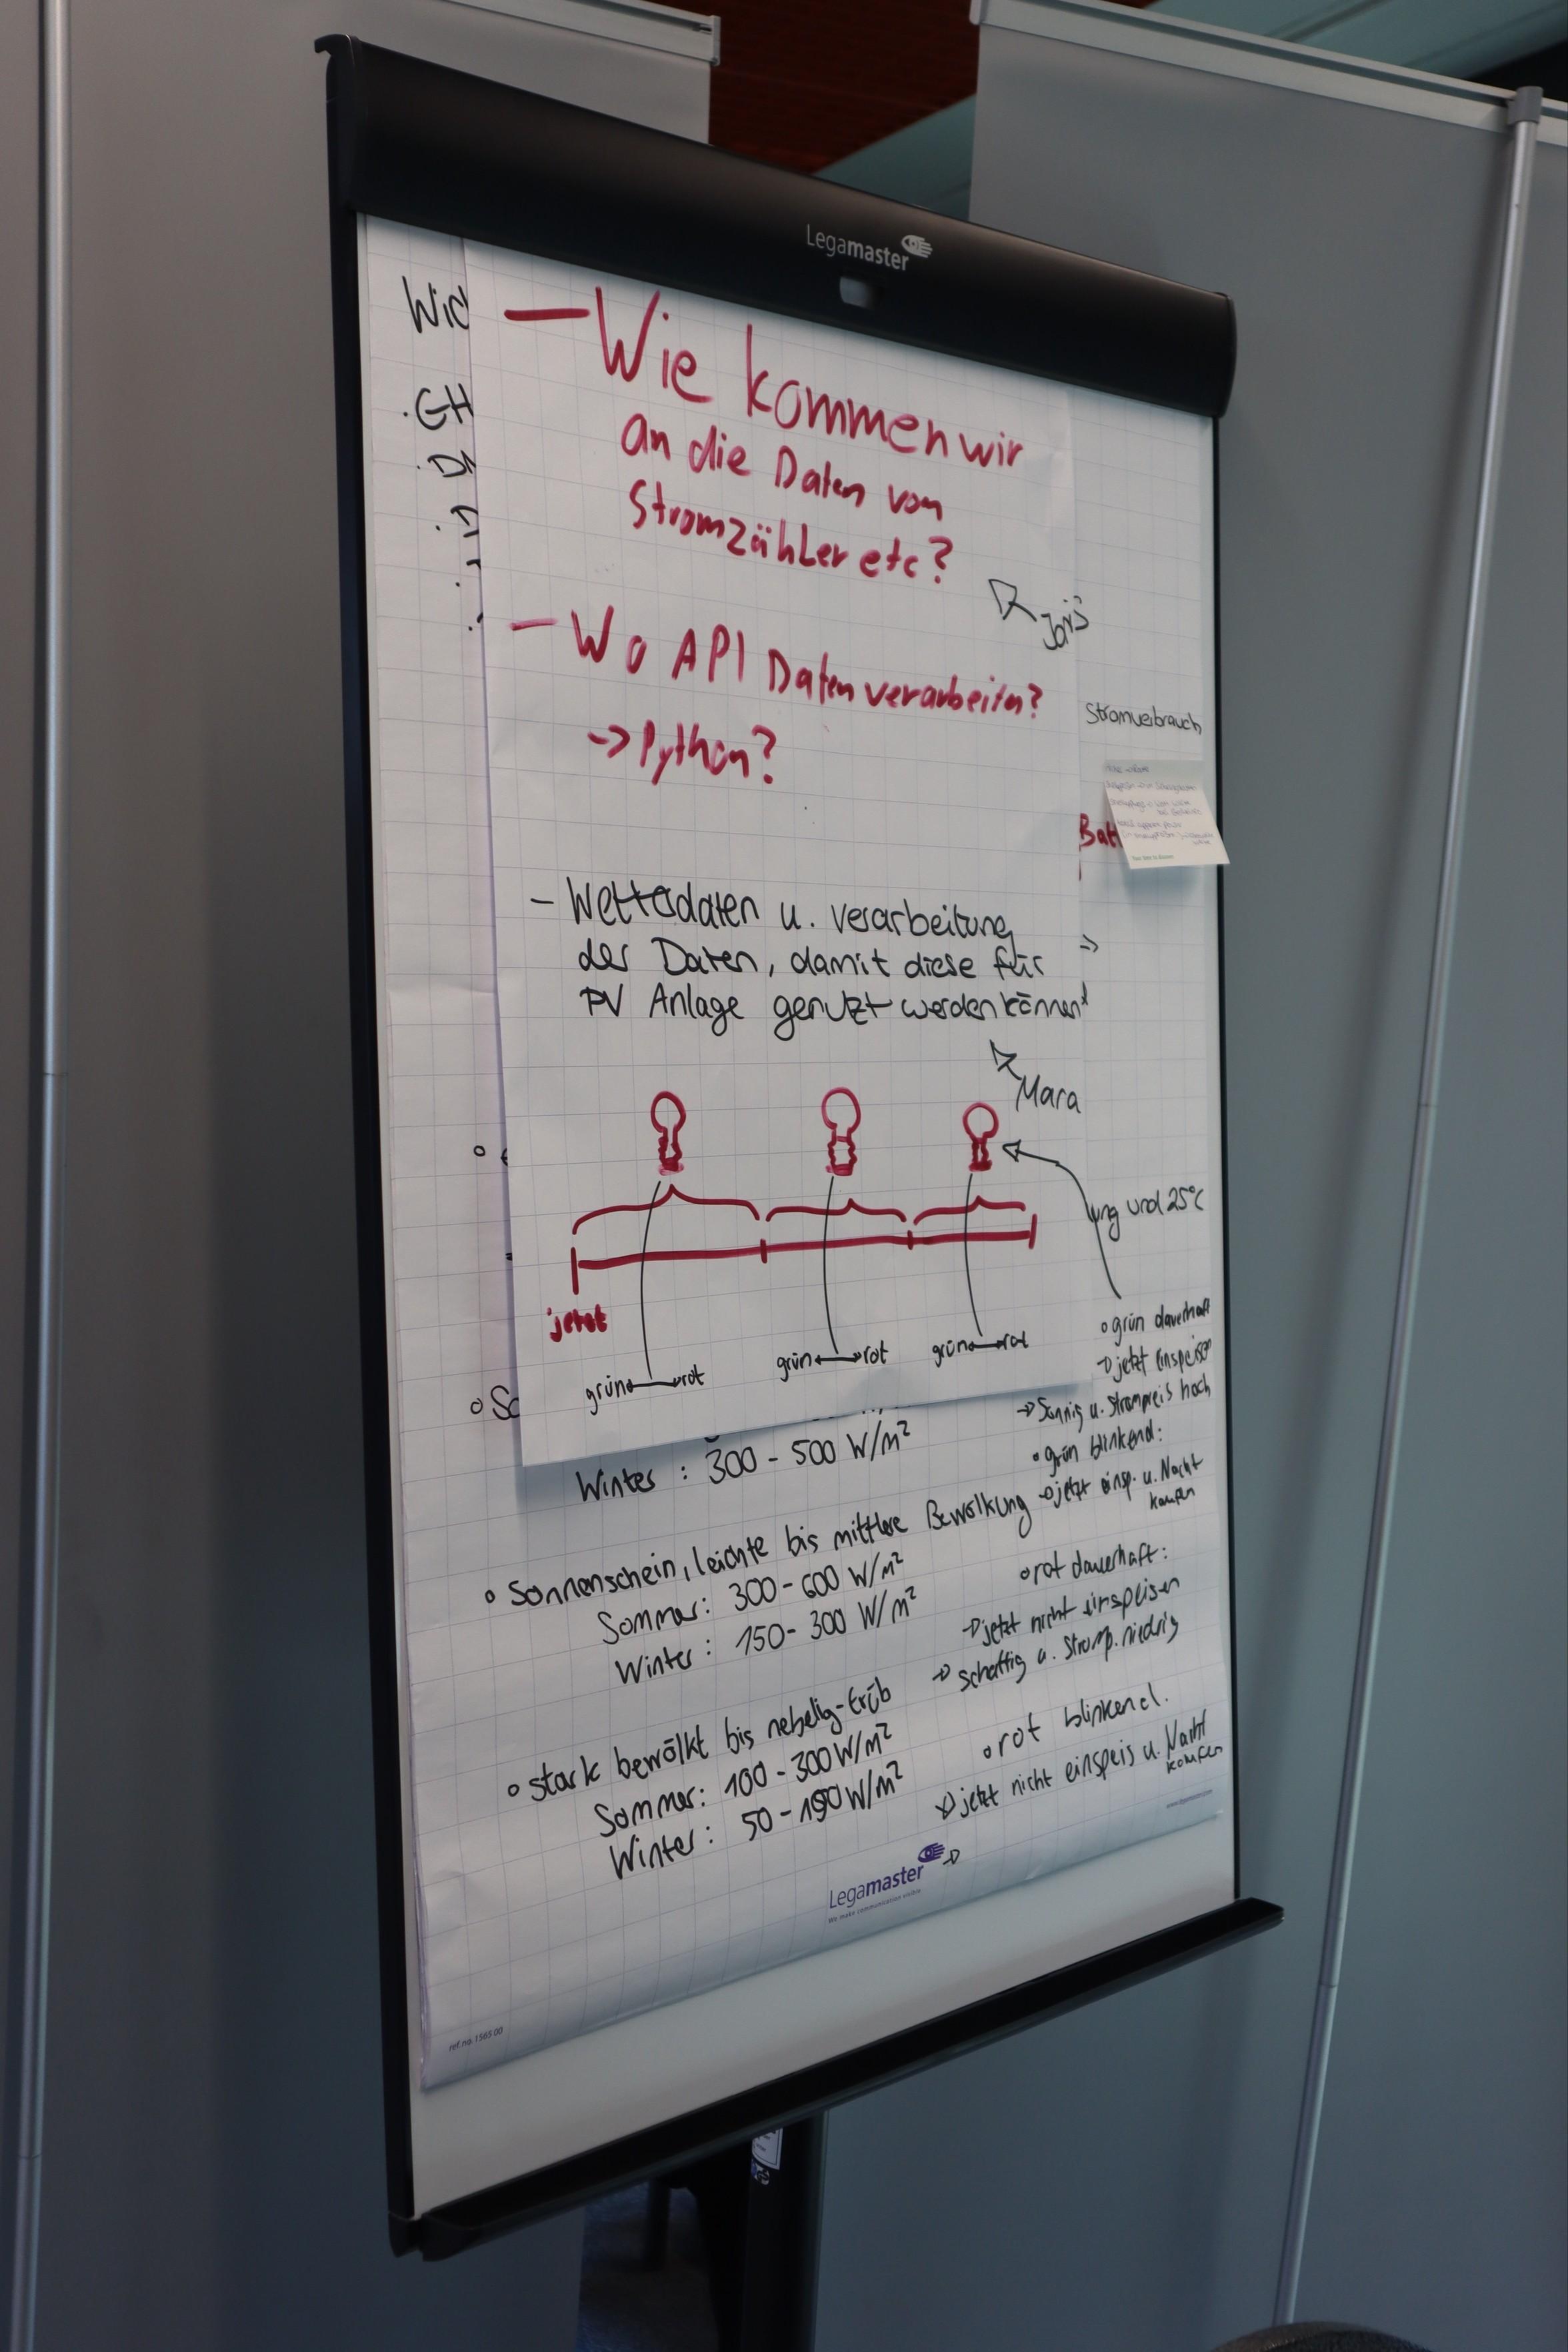 Legamaster
Wic
GH
– Wie kommen wir
an die Daten vom
Stromzähler etc?
Joris
– Wo API Daten verarbeiten?
-> Python?
Stromverbrauch
Bat
– Wetterdaten u. verarbeitung
der Daten, damit diese für
PV Anlage genutzt werden können
=>
Mara
ung und 25°C
jetzt
grün rot
grün rot
grün rot
° grün dauerhaft
-> jetzt einspeisen
-> Sonnig u. Strompreis hoch
° grün blinkend:
-> jetzt einsp. u. Nacht
kaufen
° rot dauerhaft:
-> jetzt nicht einspeisen
-> schattig u. Stromp. niedrig
° rot blinkend.
-> jetzt nicht einspeis u. Nacht
kaufen
->
° So
Winter : 300 - 500 W/m²
° Sonnenschein, leichte bis mittlere Bewölkung
Sommer: 300 - 600 W/m²
Winter : 150 - 300 W/m²
° stark bewölkt bis nebelig-trüb
Sommer: 100 - 300 W/m²
Winter : 50 - 150 W/m²
www.legamaster.com
Legamaster
We make communication visible
ref. no. 1565 00